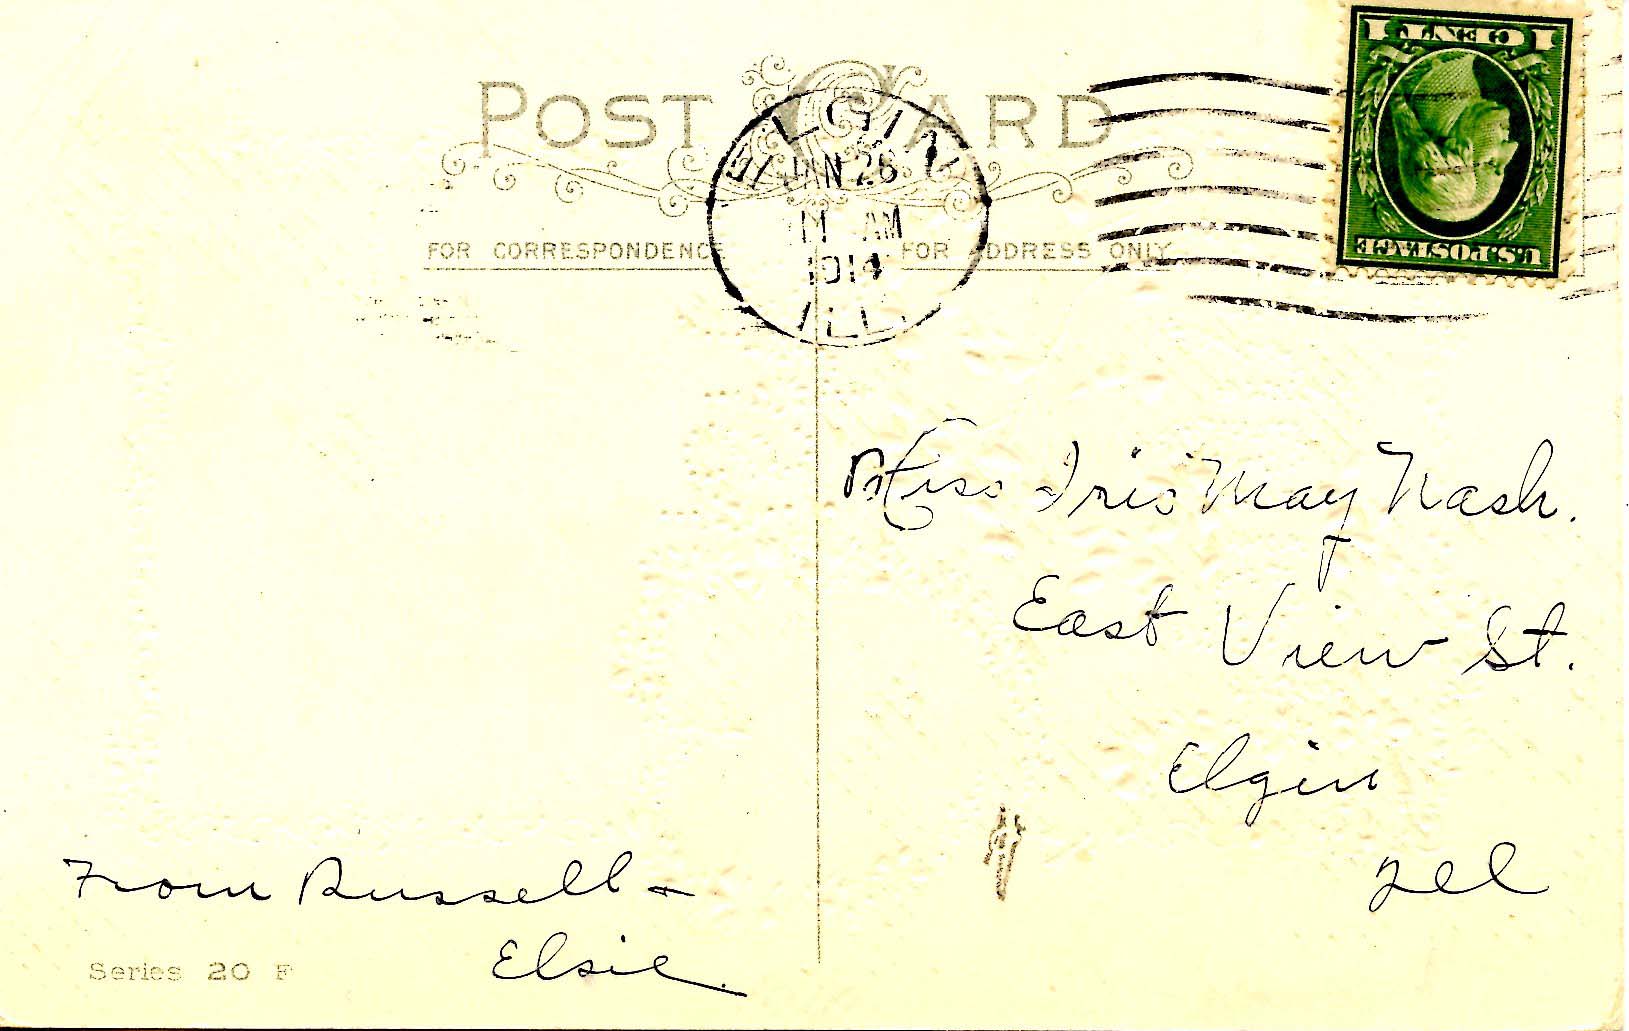 POST CARD
ELGIN
JAN 26
AM
1914
ILL.
1 CENT 1
U.S. POSTAGE
FOR CORRESPONDENCE
FOR ADDRESS ONLY
Miss Iris May Nash.
East View St.
Elgin
Ill
From Russell &
Elsie.
Series 20 F